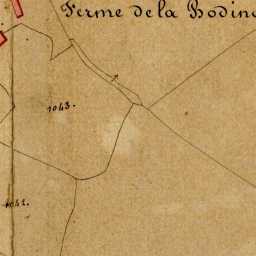 Ferme de la Bodin
1043.
1041.